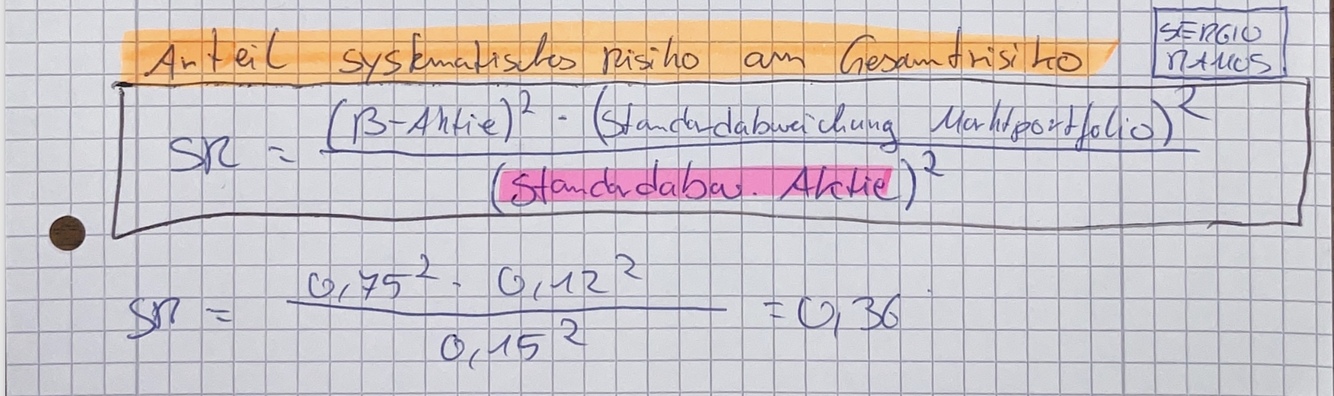 Anteil systematisches Risiko am Gesamtrisiko
SERGIO
RAMOS
SR = (β-Aktie)² · (Standardabweichung Marktportfolio)²
(Standardabw. Aktie)²
SR = 0,75² · 0,12² = 0,36
0,15²